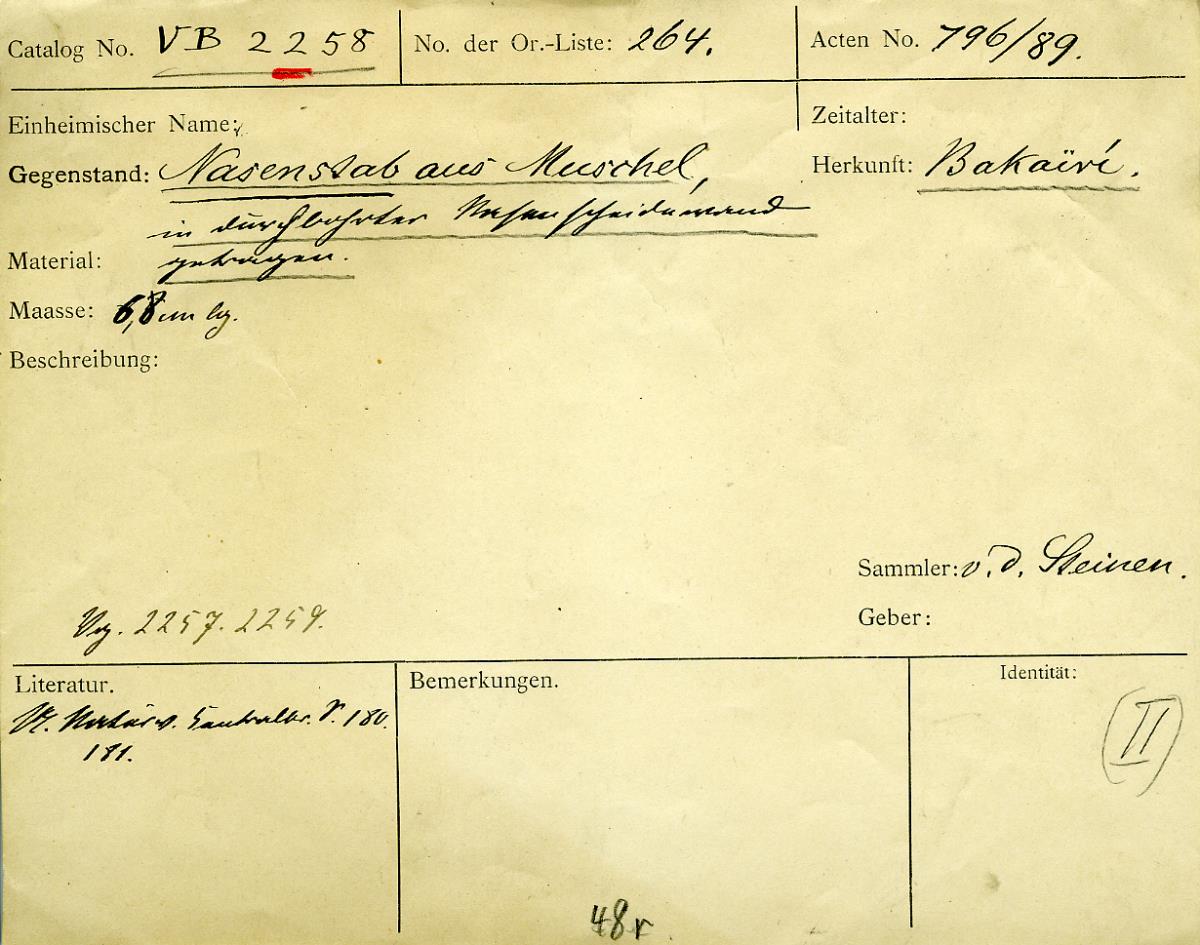 Catalog No. VB 2258
No. der Or.-Liste: 264.
Acten No. 796/89.
Einheimischer Name:
Zeitalter:
Gegenstand: Nasenstab aus Muschel,
Herkunft: Bakaïrí.
in durchbohrter Nasenscheidewand
getragen.
Material:
Maasse: 6,8 cm lg.
Beschreibung:
Sammler: v. d. Steinen.
Geber:
Vg. 2257. 2259.
Literatur.
Naturv. Centralbr. S. 180.
181.
Bemerkungen.
48r
Identität:
(II)